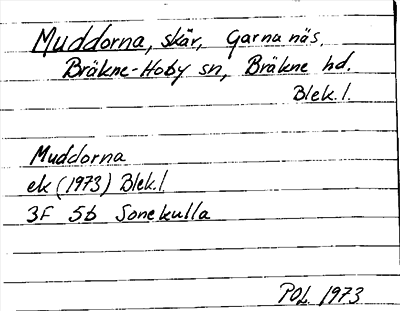 Muddorna, skär, Garnanäs,
Bräkne-Hoby sn, Bräkne hd.
Blek. l.
Muddorna
ek (1973) Blek. l
3F 5b Sonekulla
POL 1973